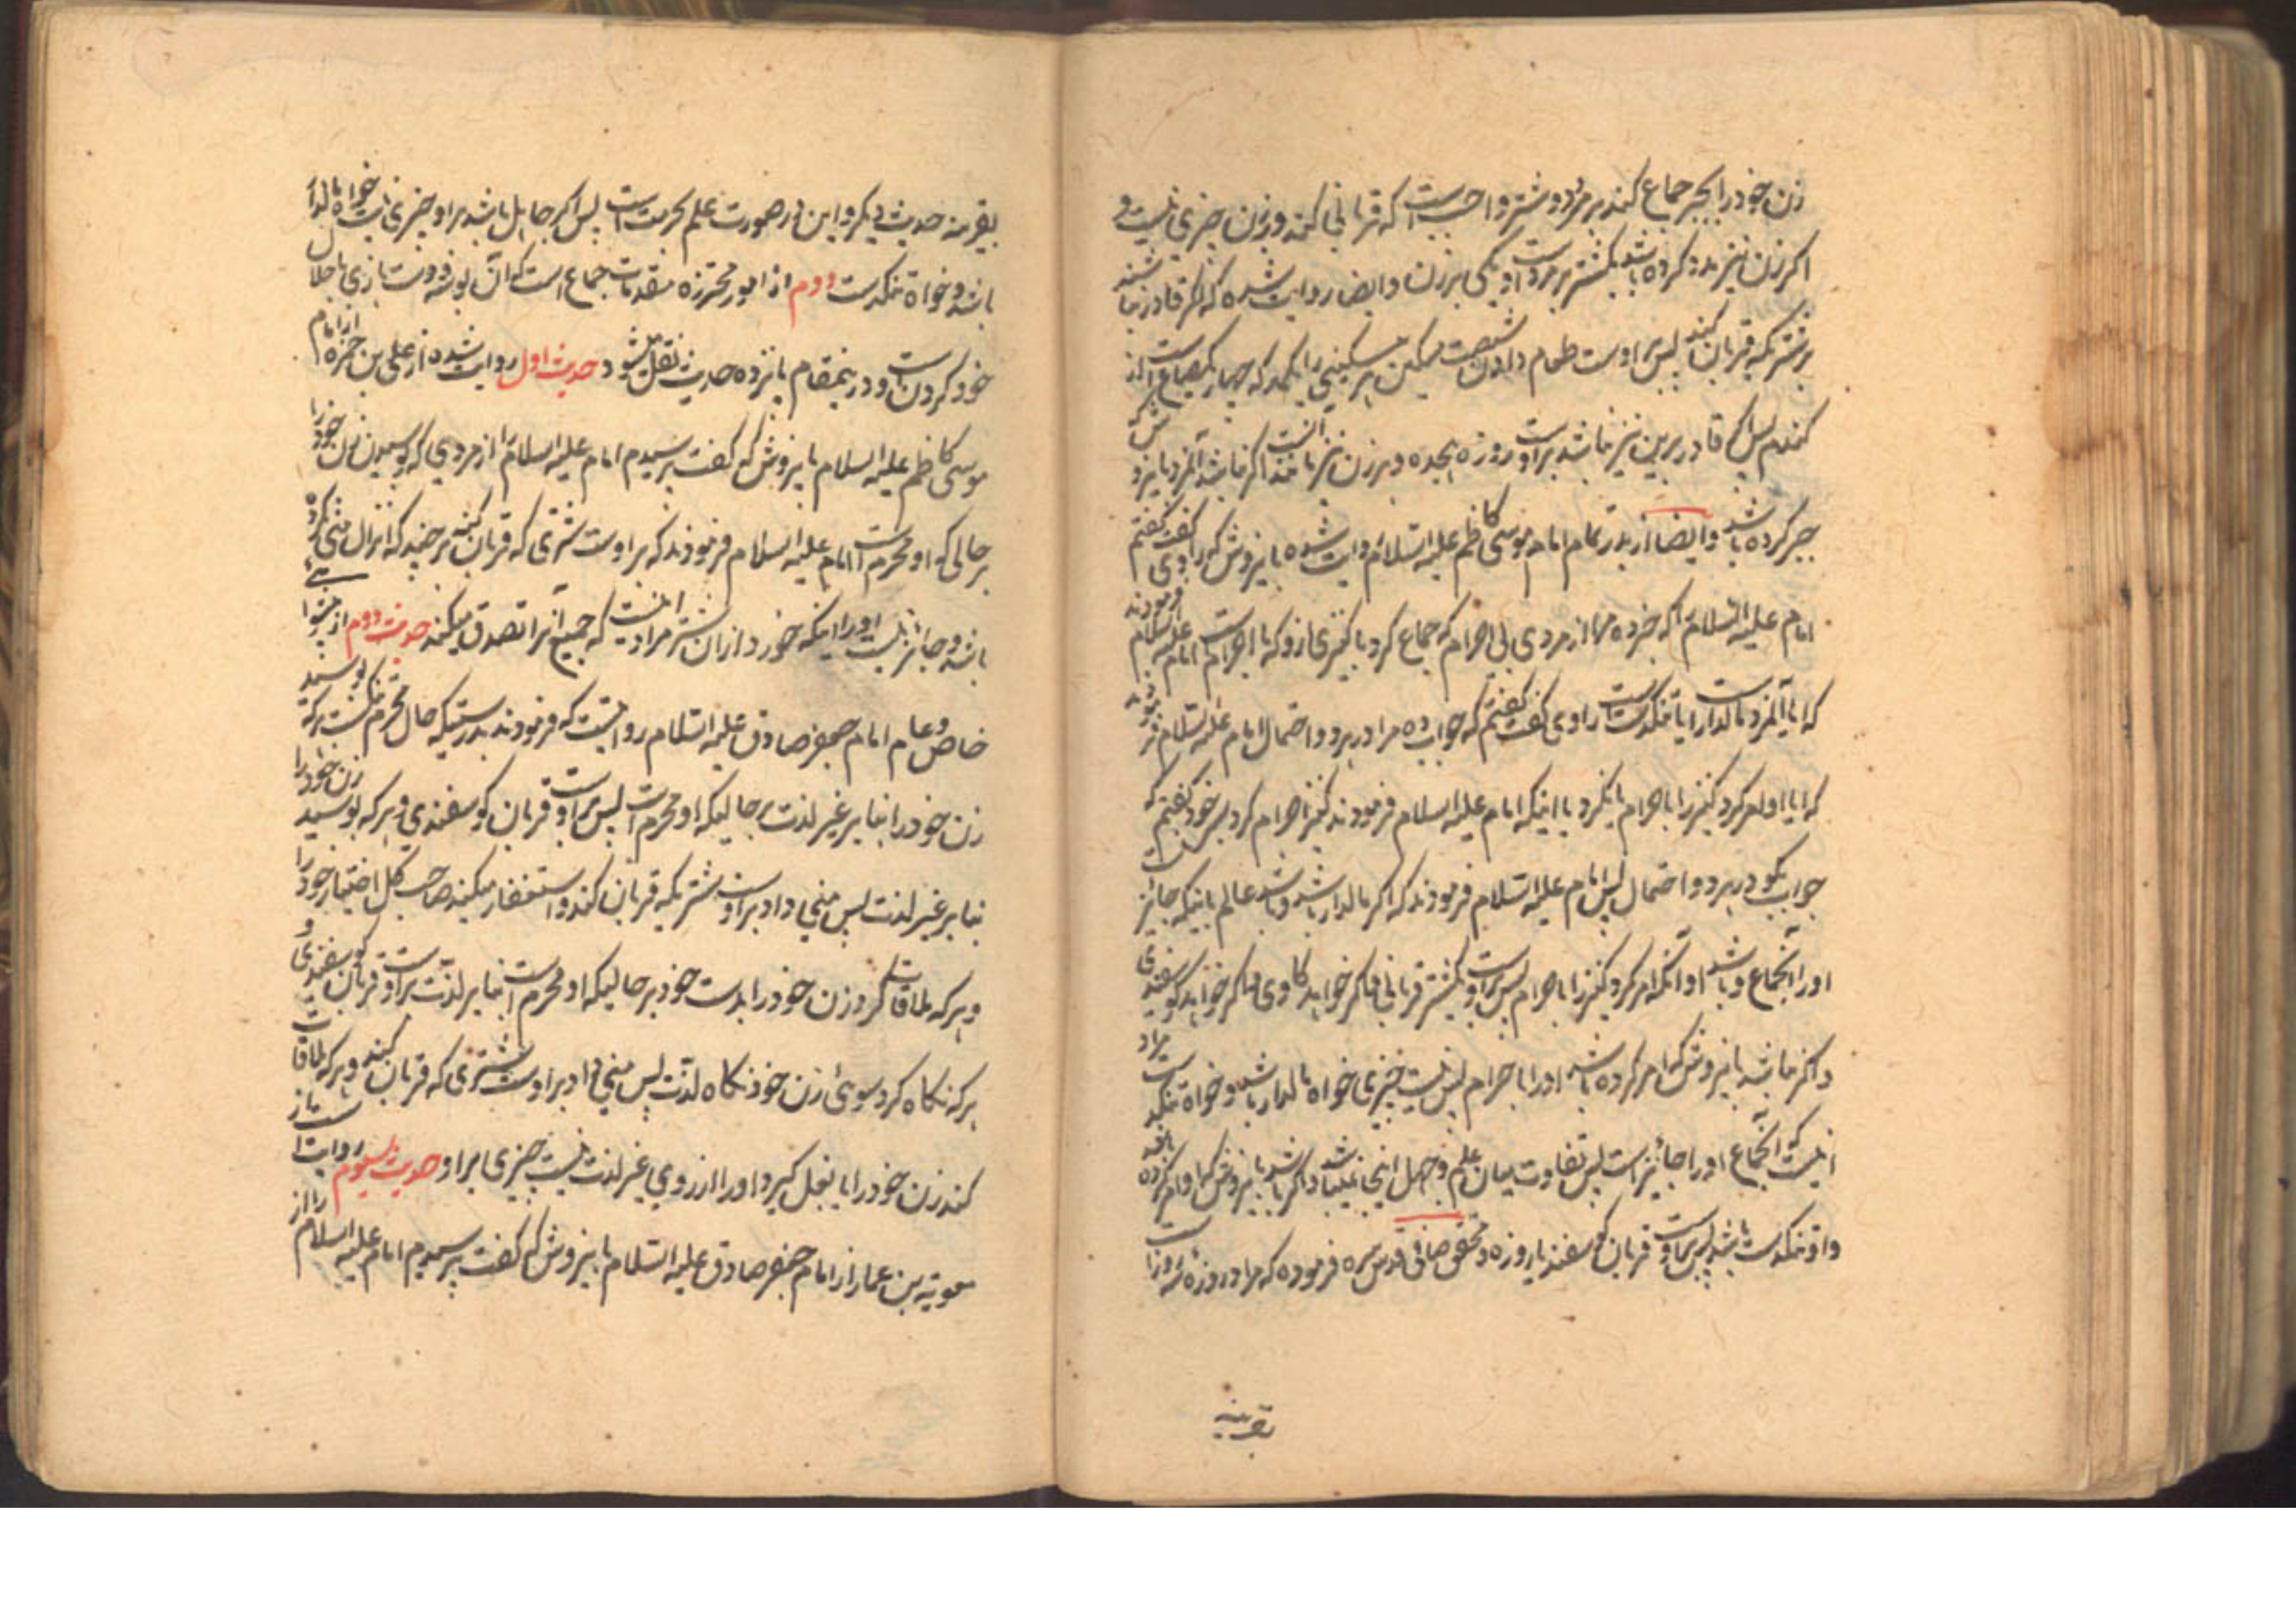 زن خود را بجبر جماع کند بر مرد دو شتر واجبست که قربانی کند و بر زن چیزی نیست و
اکر زن نیز مدد کرده باشد یکشتر بر مرد است و یکی بر زن و ایضا روایت شده که اکر قادر نباشند
بر شتر یکه قربان کنند پس بر اوست طعام دادن شصت مسکین هر مسکینی را یکمد که چهار یک صاع است از
کندم پس اکر قادر بر این نیز نباشد بر اوست روزه هجده و بر زن نیز مانند انست اکر نباشد آنمرد با نزد
جبر کرده باشد و ایضا از بدر تمام امام موسی کاظم علیه السلام روایت شده باینروش که راوی کفت کفتم
امام علیه السلام را که خبر ده مرا از مردی بی احرام که جماع کرد با کنیزی از او که با احرام است امام علیه السلام فرمودند
که ایا آنمرد مالدار است یا تنکدست راوی کفت کفتم که جواب ده مرا در هر دو احتمال امام علیه السلام فرمودند
که ایا او امر کرد کنیز را باحرام یا نکرد یا اینکه امام علیه السلام فرمودند کنیز احرام کرد بسر خود کفتم که
جواب بکو در هر دو احتمال پس امام علیه السلام فرمودند که اکر مالدار باشد و باشد عالم باینکه جائز نیست
او را آنجماع و باشد او آنکه امر کرد کنیز را باحرام پس بر اوست یکشتر قربانی و اکر خواهد کاوی و اکر خواهد کوسفندی
و اکر نباشد باینروش که امر کرده باشد او را باحرام پس نیست چیزی خواه مالدار باشد و خواه تنکدست مراد
انیست که آنجماع او را جائز است پس تفاوت میان علم و جهل اینجا نمیباشد و اکر باشد باینروش که او امر کرده باشد
و او تنکدست باشد پس بر اوست قربان کوسفند یا روزه و محقق صافی قدس سره فرموده که مراد روزه سه روز است
بقرینه
بقرینه حدیث دیکر و این در صورت علم بحرمت است پس اکر جاهل باشد بر او چیزی نیست خواه مالدار
باشد و خواه تنکدست دوم از امور محترزه مقدمات جماع است که آن بوسه و دست بازی با حلال
خود کردن است و در ینمقام پانزده حدیث نقل میشود حدیث اول روایت شده از علی بن حمزه از امام
موسی کاظم علیه السلام باینروش که کفت پرسیدم امام علیه السلام را از مردی که بوسید زن خود را
بر حالی که او محرم است امام علیه السلام فرمودند که بر اوست شتری که قربان کند هر چند که انزال منی نکرده
باشد و جائز نیست او را اینکه خورد از ان شتر مراد انیست که جمیع آنرا تصدق میکند حدیث دوم از پیشوای
خاص و عام امام جعفر صادق علیه السلام روایتست که فرمودند بدرستیکه حال محرم تنکست هر که بوسید
زن خود را بنا بر غیر لذت بر حالیکه او محرم است پس بر اوست قربان کوسفندی و هر که بوسید زن خود را
بنا بر غیر لذت پس منی داد بر اوست شتر یکه قربان کند و استغفار میکند صاحب کل اختیار خود را
و هر که ملاقات کرد زن خود را بدست خود بر حالیکه او محرم است بنا بر لذت بر اوست قربان کوسفندی و
هر که نکاه کرد بسوی زن خود نکاه لذت پس منی داد بر اوست شتری که قربان کند و هر که ملاقات
کند زن خود را یا بغل کیرد او را از روی غیر لذت نیست چیزی بر او حدیث سیوم روایت از
معویة بن عمار از امام جعفر صادق علیه السلام باینروش که کفت پرسیدم امام علیه السلام را از